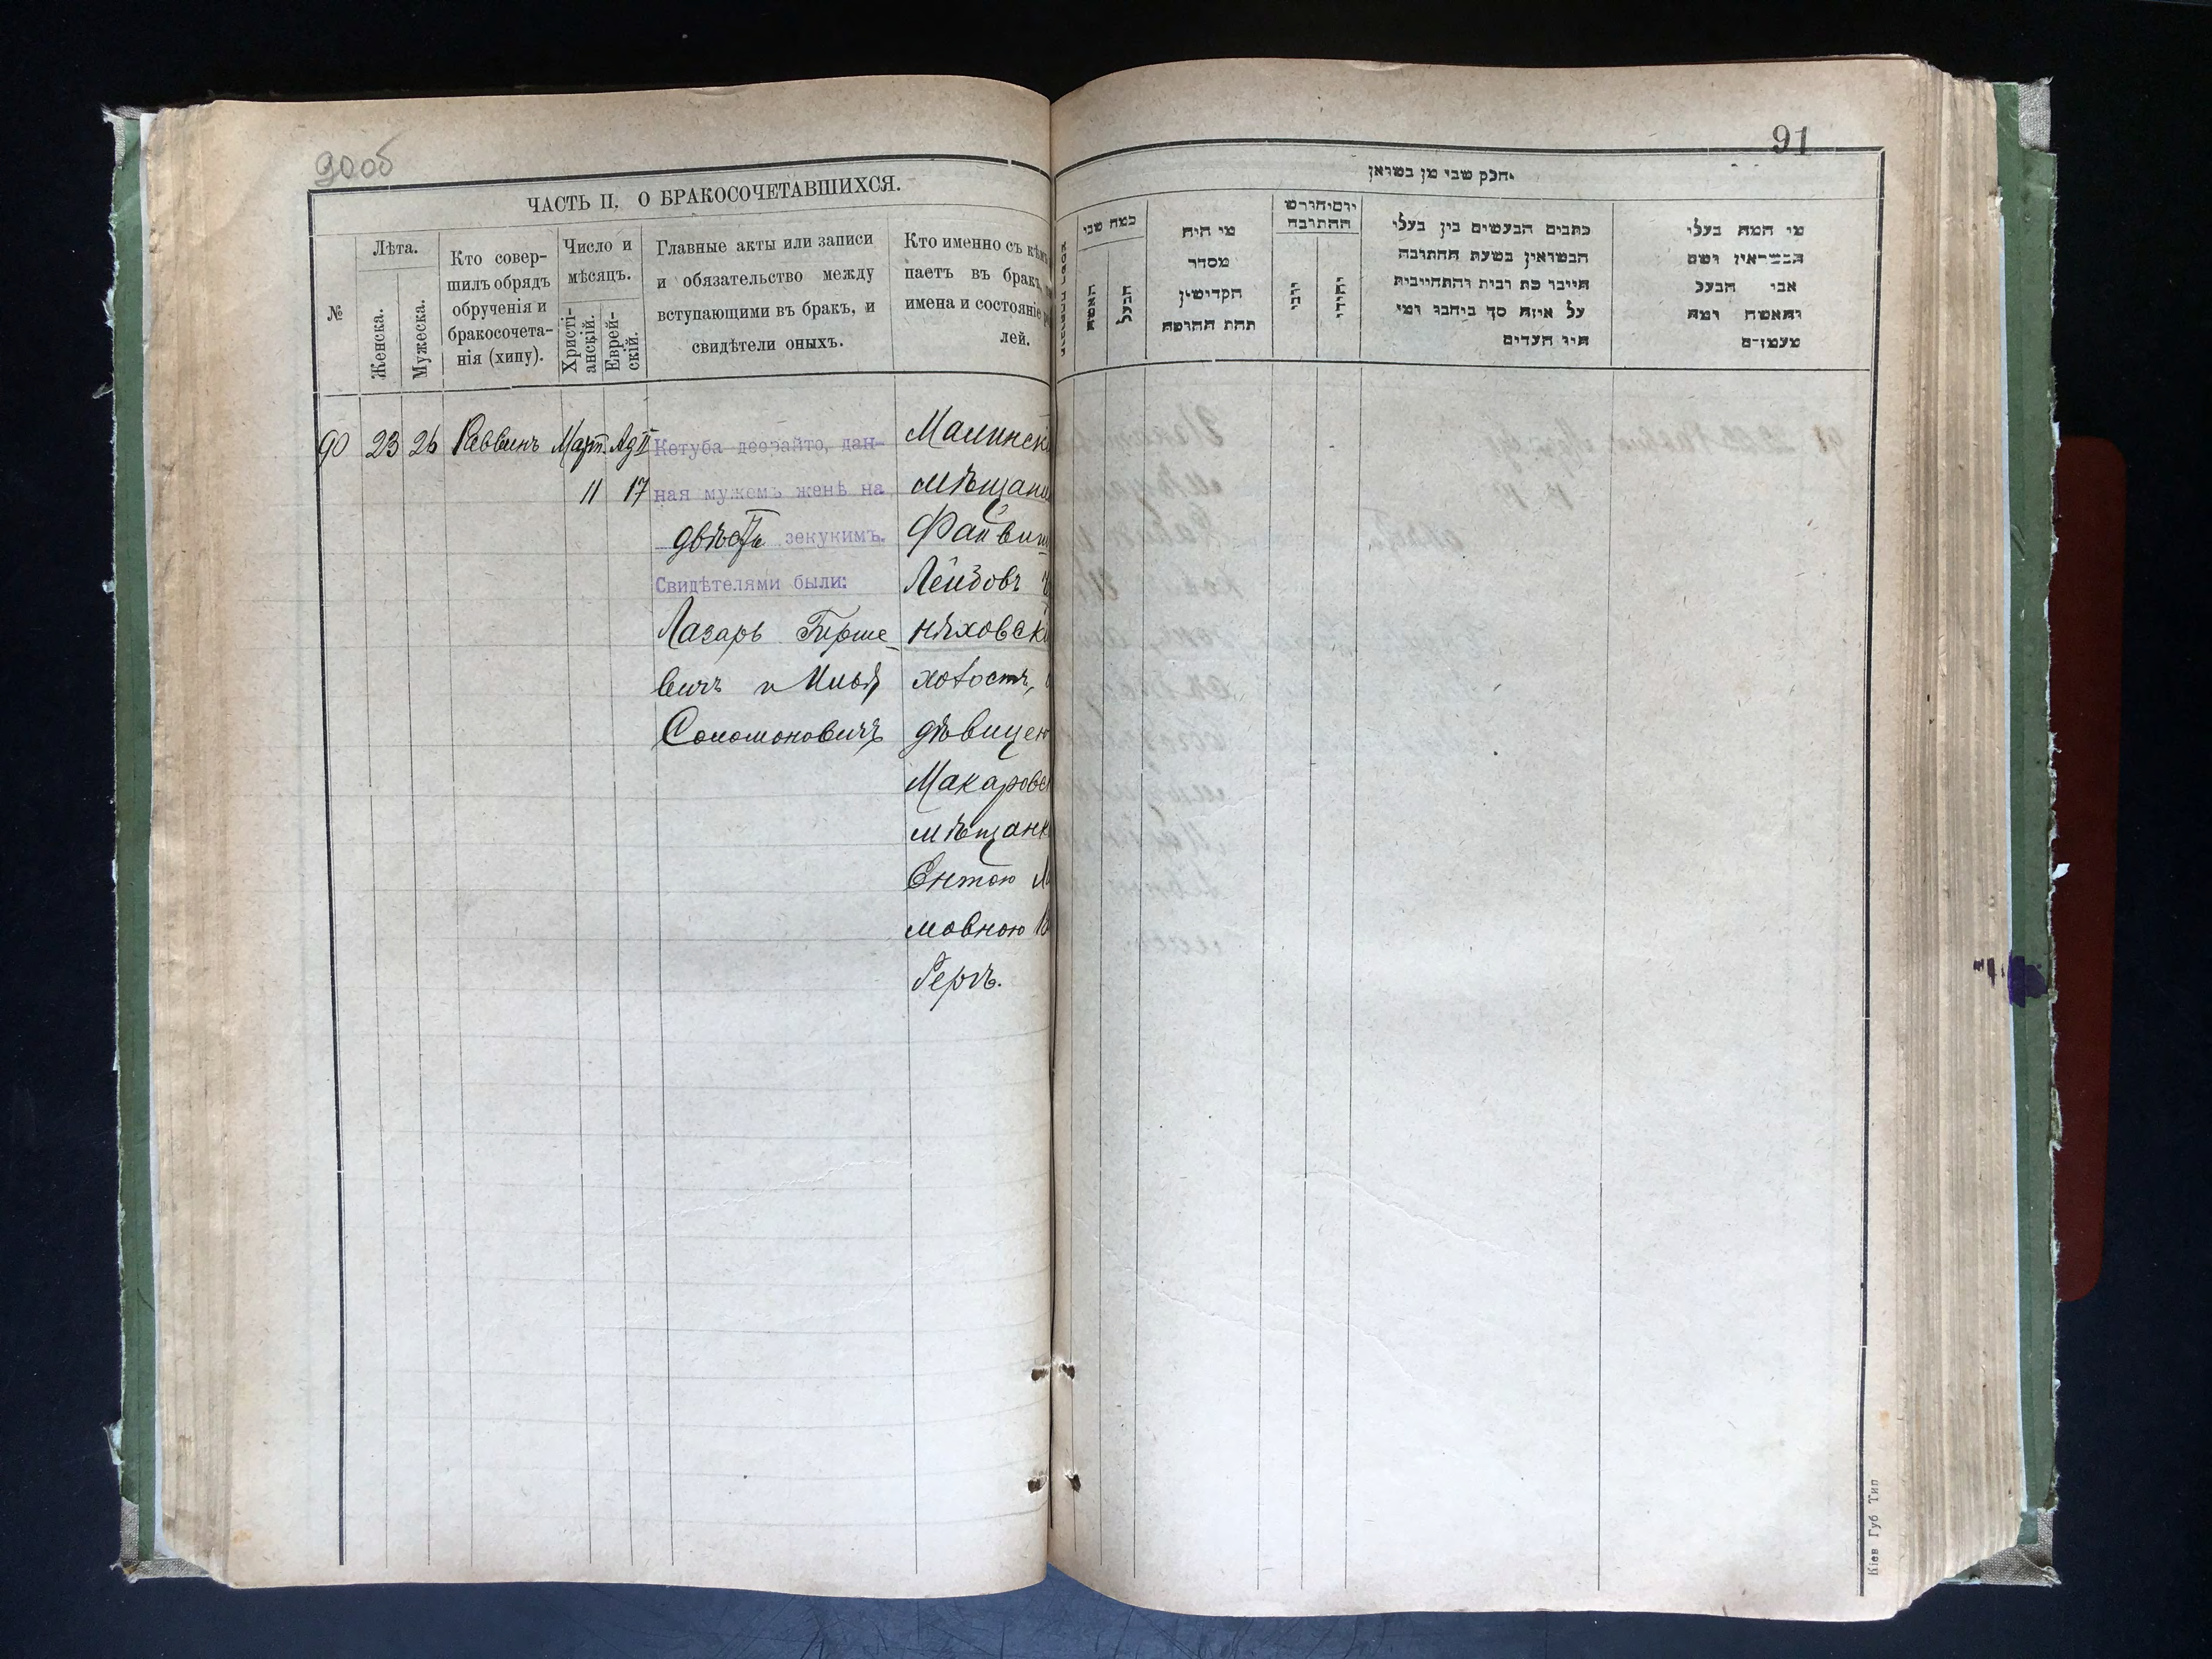 90об
ЧАСТЬ II. О БРАКОСОЧЕТАВШИХСЯ.
№
Лѣта.
Женска.
Мужеска.
Кто совер-
шилъ обрядъ
обрученія и
бракосочета-
нія (хипу).
Число и
мѣсяцъ.
Христі-
анскій.
Еврей-
скій.
Главные акты или записи
и обязательство между
вступающими въ бракъ, и
свидѣтели оныхъ.
Кто именно съ кѣмъ
паетъ въ бракъ
имена и состояніе
лей.
90 23 26 Раввинъ Март. Ад II
11 17
Кетуба деорайто, дан-
ная мужемъ женѣ на
двѣсти зекукимъ.
Свидѣтелями были:
Лазарь Гирше-
вичъ и Илья
Соломоновичъ
Малинск
мѣщани
Файвиш
Лейбовъ
няховск
холостъ,
дѣвицею
Макаровс
мѣщанк
Ентою
мовною
Герцъ.
91
חלק שני מן בשואין
כמה שני
האשה
הבעל
מי היה
מסדר
הקדישין
תחת החופה
יום וחודש
החתונה
יוני
יהודי
כתבים הנעשים בין בעלי
הנשואין בשעת החתונה
חייבו כת ובית והתחייבית
על איזה סך ביחבו ומי
היו העדים
מי המה בעלי
הנשואין ושם
אבי הבעל
והאשה ומה
מעמדם
Кіев Губ Тип